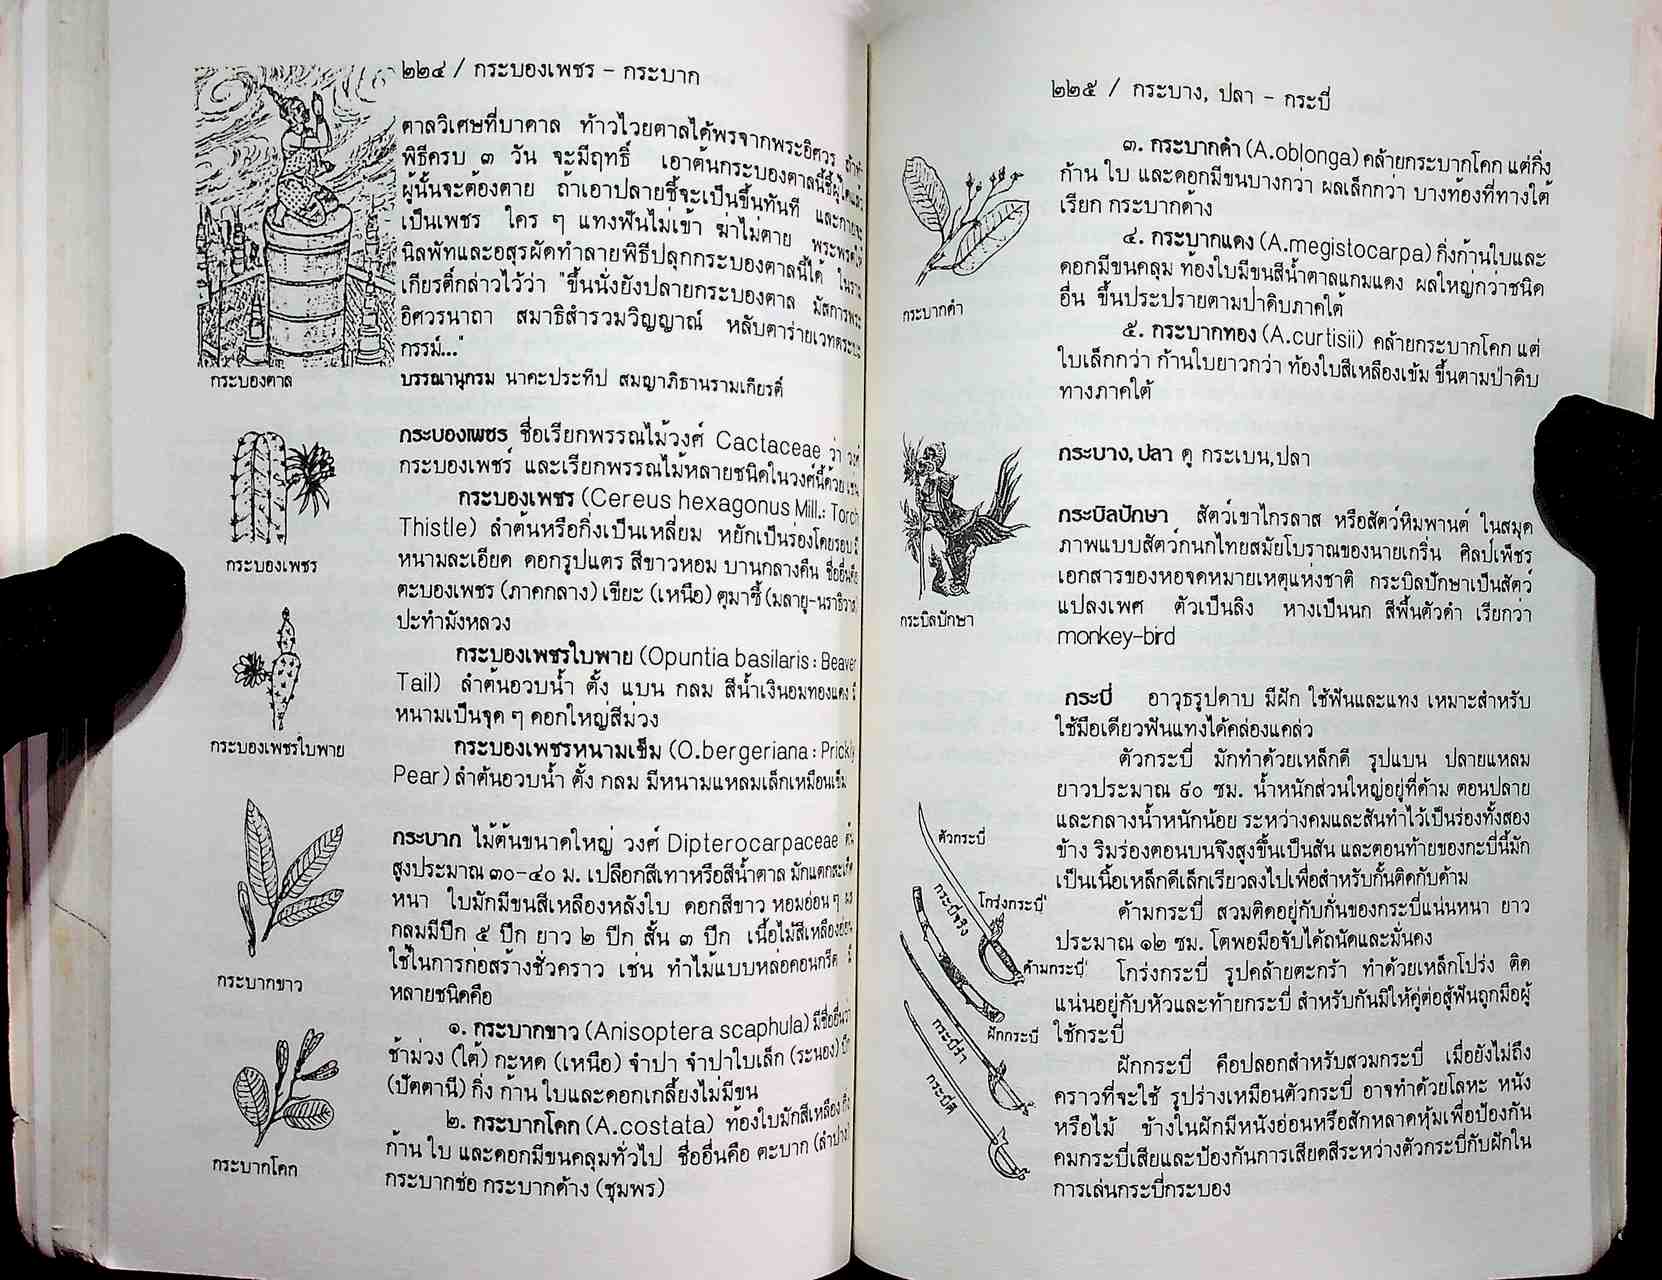 ๒๒๔ / กระบองเพชร – กระบาก
ตาลวิเศษที่บาดาล ท้าวไวยตาลได้พรจากพระอิศวร ถ้าทำ
พิธีครบ ๓ วัน จะมีฤทธิ์ เอาต้นกระบองตาลนี้ชี้ผู้ใดแล้ว
ผู้นั้นจะต้องตาย ถ้าเอาปลายชี้จะเป็นขึ้นทันที และกายจะ
เป็นเพชร ใคร ๆ แทงฟันไม่เข้า ฆ่าไม่ตาย พระพรตให้
นิลพัทและอสุรผัดทำลายพิธีปลุกกระบองตาลนี้ได้ ในราม
เกียรติ์กล่าวไว้ว่า "ขึ้นนั่งยังปลายกระบองตาล มัสการพระ
อิศวรนาถา สมาธิสำรวมวิญญาณ์ หลับตาร่ายเวทตระบะ
กรรม์..."
บรรณานุกรม นาคะประทีป สมญาภิธานรามเกียรติ์
กระบองตาล
กระบองเพชร ชื่อเรียกพรรณไม้วงศ์ Cactaceae ว่า วงศ์
กระบองเพชร์ และเรียกพรรณไม้หลายชนิดในวงศ์นี้ด้วย เช่น
กระบองเพชร (Cereus hexagonus Mill.: Torch
Thistle) ลำต้นหรือกิ่งเป็นเหลี่ยม หยักเป็นร่องโดยรอบ มี
หนามละเอียด ดอกรูปแตร สีขาวหอม บานกลางคืน ชื่ออื่นคือ
ตะบองเพชร (ภาคกลาง) เขียะ (เหนือ) ตุมาซี้ (มลายู-นราธิวาส)
ปะทำมังหลวง
กระบองเพชร
กระบองเพชรใบพาย (Opuntia basilaris : Beaver
Tail) ลำต้นอวบน้ำ ตั้ง แบน กลม สีน้ำเงินอมทองแดง มี
หนามเป็นจุด ๆ ดอกใหญ่สีม่วง
กระบองเพชรใบพาย
กระบองเพชรหนามเข็ม (O.bergeriana : Prickly
Pear) ลำต้นอวบน้ำ ตั้ง กลม มีหนามแหลมเล็กเหมือนเข็ม
กระบาก ไม้ต้นขนาดใหญ่ วงศ์ Dipterocarpaceae ต้น
สูงประมาณ ๓๐-๔๐ ม. เปลือกสีเทาหรือสีน้ำตาล มักแตกสะเก็ด
หนา ใบมักมีขนสีเหลืองหลังใบ ดอกสีขาว หอมอ่อน ๆ ผล
กลมมีปีก ๕ ปีก ยาว ๒ ปีก สั้น ๓ ปีก เนื้อไม้สีเหลืองอ่อน
ใช้ในการก่อสร้างชั่วคราว เช่น ทำไม้แบบหล่อคอนกรีต มี
หลายชนิดคือ
กระบากขาว
๑. กระบากขาว (Anisoptera scaphula) มีชื่ออื่นว่า
ช้าม่วง (ใต้) กะหด (เหนือ) จำปา จำปาใบเล็ก (ระนอง)
(ปัตตานี) กิ่ง ก้าน ใบและดอกเกลี้ยงไม่มีขน
๒. กระบากโคก (A.costata) ท้องใบมักสีเหลือง กิ่ง
ก้าน ใบ และดอกมีขนคลุมทั่วไป ชื่ออื่นคือ ตะบาก (ลำปาง)
กระบากช่อ กระบากด้าง (ชุมพร)
กระบากโคก
๒๒๕ / กระบาง, ปลา – กระบี่
๓. กระบากดำ (A.oblonga) คล้ายกระบากโคก แต่กิ่ง
ก้าน ใบ และดอกมีขนบางกว่า ผลเล็กกว่า บางท้องที่ทางใต้
เรียก กระบากด้าง
๔. กระบากแดง (A.megistocarpa) กิ่งก้านใบและ
ดอกมีขนคลุม ท้องใบมีขนสีน้ำตาลแกมแดง ผลใหญ่กว่าชนิด
อื่น ขึ้นประปรายตามป่าดิบภาคใต้
กระบากดำ
๕. กระบากทอง (A.curtisii) คล้ายกระบากโคก แต่
ใบเล็กกว่า ก้านใบยาวกว่า ท้องใบสีเหลืองเข้ม ขึ้นตามป่าดิบ
ทางภาคใต้
กระบาง,ปลา ดู กระเบน,ปลา
กระบิลปักษา สัตว์เขาไกรลาส หรือสัตว์หิมพานต์ ในสมุด
ภาพแบบสัตว์กนกไทยสมัยโบราณของนายเกริ่น ศิลป์เพ็ชร
เอกสารของหอจดหมายเหตุแห่งชาติ กระบิลปักษาเป็นสัตว์
แปลงเพศ ตัวเป็นลิง หางเป็นนก สีพื้นตัวดำ เรียกว่า
monkey-bird
กระบิลปักษา
กระบี่ อาวุธรูปดาบ มีฝัก ใช้ฟันและแทง เหมาะสำหรับ
ใช้มือเดียวฟันแทงได้คล่องแคล่ว
ตัวกระบี่ มักทำด้วยเหล็กดี รูปแบน ปลายแหลม
ยาวประมาณ ๙๐ ซม. น้ำหนักส่วนใหญ่อยู่ที่ด้าม ตอนปลาย
และกลางน้ำหนักน้อย ระหว่างคมและสันทำไว้เป็นร่องทั้งสอง
ข้าง ริมร่องตอนบนจึงสูงขึ้นเป็นสัน และตอนท้ายของกะบี่นี้มัก
เป็นเนื้อเหล็กดีเล็กเรียวลงไปเพื่อสำหรับกั้นติดกับด้าม
ด้ามกระบี่ สวมติดอยู่กับกั่นของกระบี่แน่นหนา ยาว
ประมาณ ๑๒ ซม. โตพอมือจับได้ถนัดและมั่นคง
โกร่งกระบี่ รูปคล้ายตะกร้า ทำด้วยเหล็กโปร่ง ติด
แน่นอยู่กับหัวและท้ายกระบี่ สำหรับกันมิให้คู่ต่อสู้ฟันถูกมือผู้
ใช้กระบี่
ฝักกระบี่ คือปลอกสำหรับสวมกระบี่ เมื่อยังไม่ถึง
คราวที่จะใช้ รูปร่างเหมือนตัวกระบี่ อาจทำด้วยโลหะ หนัง
หรือไม้ ข้างในฝักมีหนังอ่อนหรือสักหลาดหุ้มเพื่อป้องกัน
คมกระบี่เสียและป้องกันการเสียดสีระหว่างตัวกระบี่กับฝักใน
การเล่นกระบี่กระบอง
ตัวกระบี่
กระบี่จริง
โกร่งกระบี่
ด้ามกระบี่
ฝักกระบี่
กระบี่รำ
กระบี่ตี